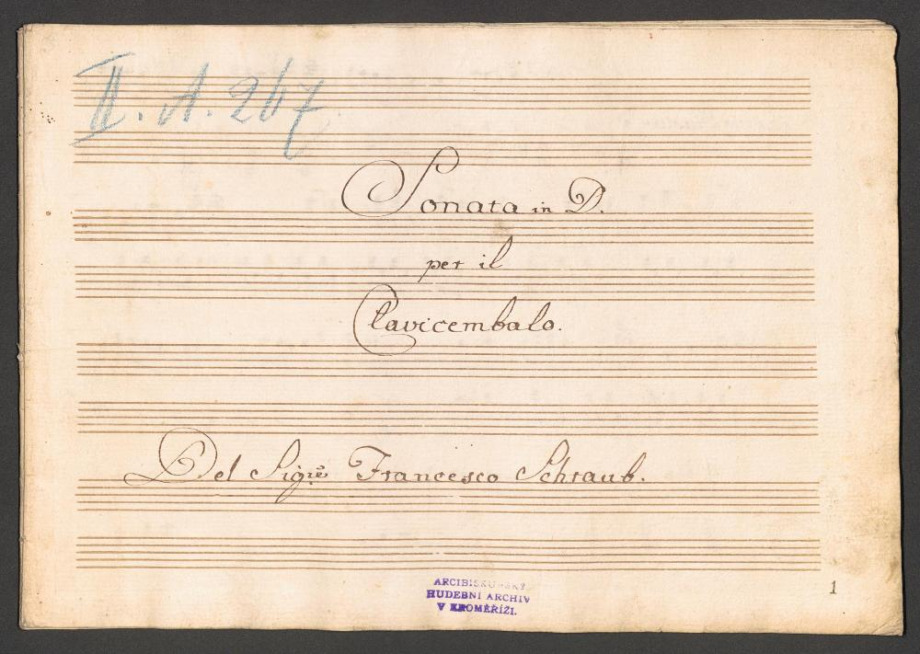 II. A. 267
Sonata in D.
per il
Clavicembalo.
Del Sigre Francesco Schraub.
HUDEBNÍ ARCHIV
V KROMĚŘÍŽI.
1